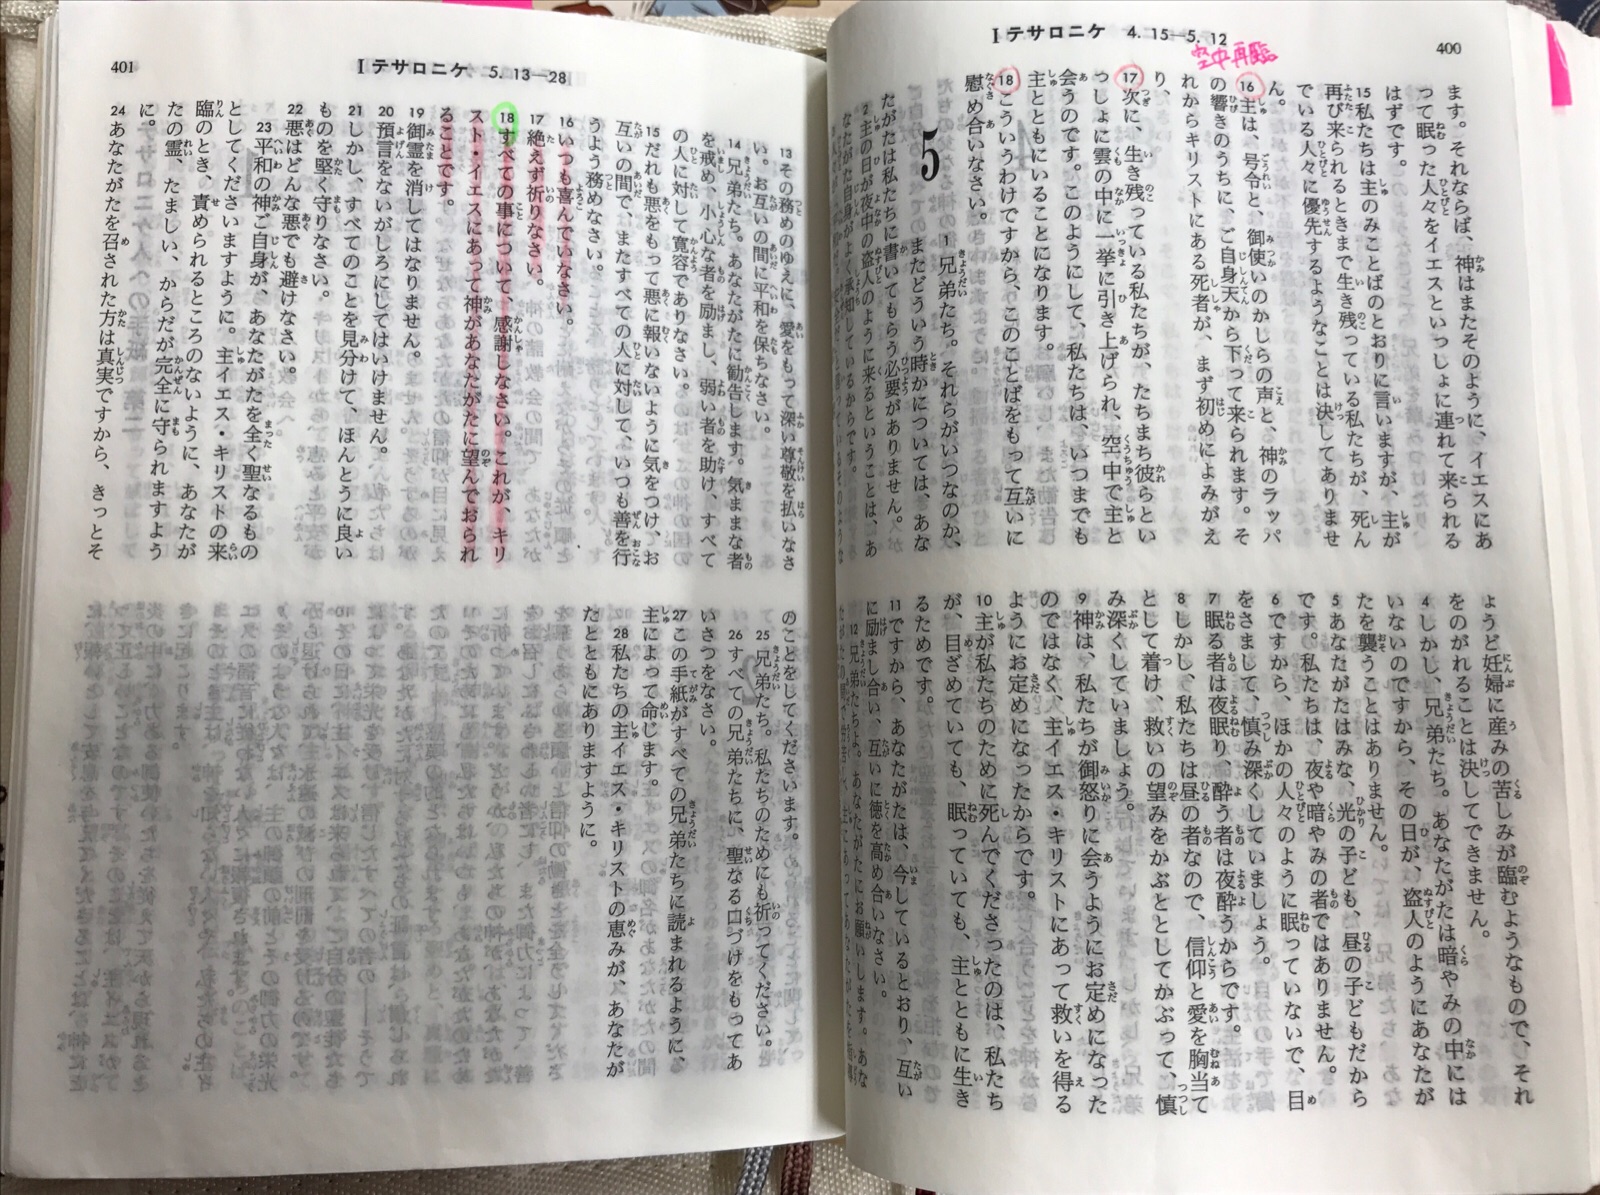 400
Ⅰテサロニケ 4.15—5.12
空中再臨
ます。それならば、神はまたそのように、イエスにあ
って眠った人々をイエスといっしょに連れて来られる
はずです。
15 私たちは主のみことばのとおりに言いますが、主が
再び来られるときまで生き残っている私たちが、死ん
でいる人々に優先するようなことは決してありませ
ん。
16 主は、号令と、御使いのかしらの声と、神のラッパ
の響きのうちに、ご自身天から下って来られます。そ
れからキリストにある死者が、まず初めによみがえ
り、
17 次に、生き残っている私たちが、たちまち彼らとい
っしょに雲の中に一挙に引き上げられ、空中で主と
会うのです。このようにして、私たちは、いつまでも
主とともにいることになります。
18 こういうわけですから、このことばをもって互いに
慰め合いなさい。
5 1 兄弟たち。それらがいつなのか、
またどういう時かについては、あな
たがたは私たちに書いてもらう必要がありません。
2 主の日が夜中の盗人のように来るということは、あ
なたがた自身がよく承知しているからです。
ょうど妊婦に産みの苦しみが臨むようなもので、それ
をのがれることは決してできません。
4 しかし、兄弟たち。あなたがたは暗やみの中には
いないのですから、その日が、盗人のようにあなたが
たを襲うことはありません。
5 あなたがたはみな、光の子ども、昼の子どもだから
です。私たちは、夜や暗やみの者ではありません。
6 ですから、ほかの人々のように眠っていないで、目
をさまして、慎み深くしていましょう。
7 眠る者は夜眠り、酔う者は夜酔うからです。
8 しかし、私たちは昼の者なので、信仰と愛を胸当て
として着け、救いの望みをかぶととしてかぶって、慎
み深くしていましょう。
9 神は、私たちが御怒りに会うようにお定めになった
のではなく、主イエス・キリストにあって救いを得る
ようにお定めになったからです。
10 主が私たちのために死んでくださったのは、私たち
が、目ざめていても、眠っていても、主とともに生き
るためです。
11 ですから、あなたがたは、今しているとおり、互い
に励まし合い、互いに徳を高め合いなさい。
12 兄弟たちよ。あなたがたにお願いします。あな
401
Ⅰテサロニケ 5.13—28
13 その務めのゆえに、愛をもって深い尊敬を払いなさ
い。お互いの間に平和を保ちなさい。
14 兄弟たち。あなたがたに勧告します。気ままな者
を戒め、小心な者を励まし、弱い者を助け、すべて
の人に対して寛容でありなさい。
15 だれも悪をもって悪に報いないように気をつけ、お
互いの間で、またすべての人に対して、いつも善を行
うよう務めなさい。
16 いつも喜んでいなさい。
17 絶えず祈りなさい。
18 すべての事について、感謝しなさい。これが、キリ
スト・イエスにあって神があなたがたに望んでおられ
ることです。
19 御霊を消してはなりません。
20 預言をないがしろにしてはいけません。
21 しかし、すべてのことを見分けて、ほんとうに良い
ものを堅く守りなさい。
22 悪はどんな悪でも避けなさい。
23 平和の神ご自身が、あなたがたを全く聖なるもの
としてくださいますように。主イエス・キリストの来
臨のとき、責められるところのないように、あなたが
たの霊、たましい、からだが完全に守られますよう
に。
24 あなたがたを召された方は真実ですから、きっとそ
のことをしてくださいます。
25 兄弟たち。私たちのためにも祈ってください。
26 すべての兄弟たちに、聖なる口づけをもってあ
いさつをなさい。
27 この手紙がすべての兄弟たちに読まれるように、
主によって命じます。
28 私たちの主イエス・キリストの恵みが、あなたが
たとともにありますように。